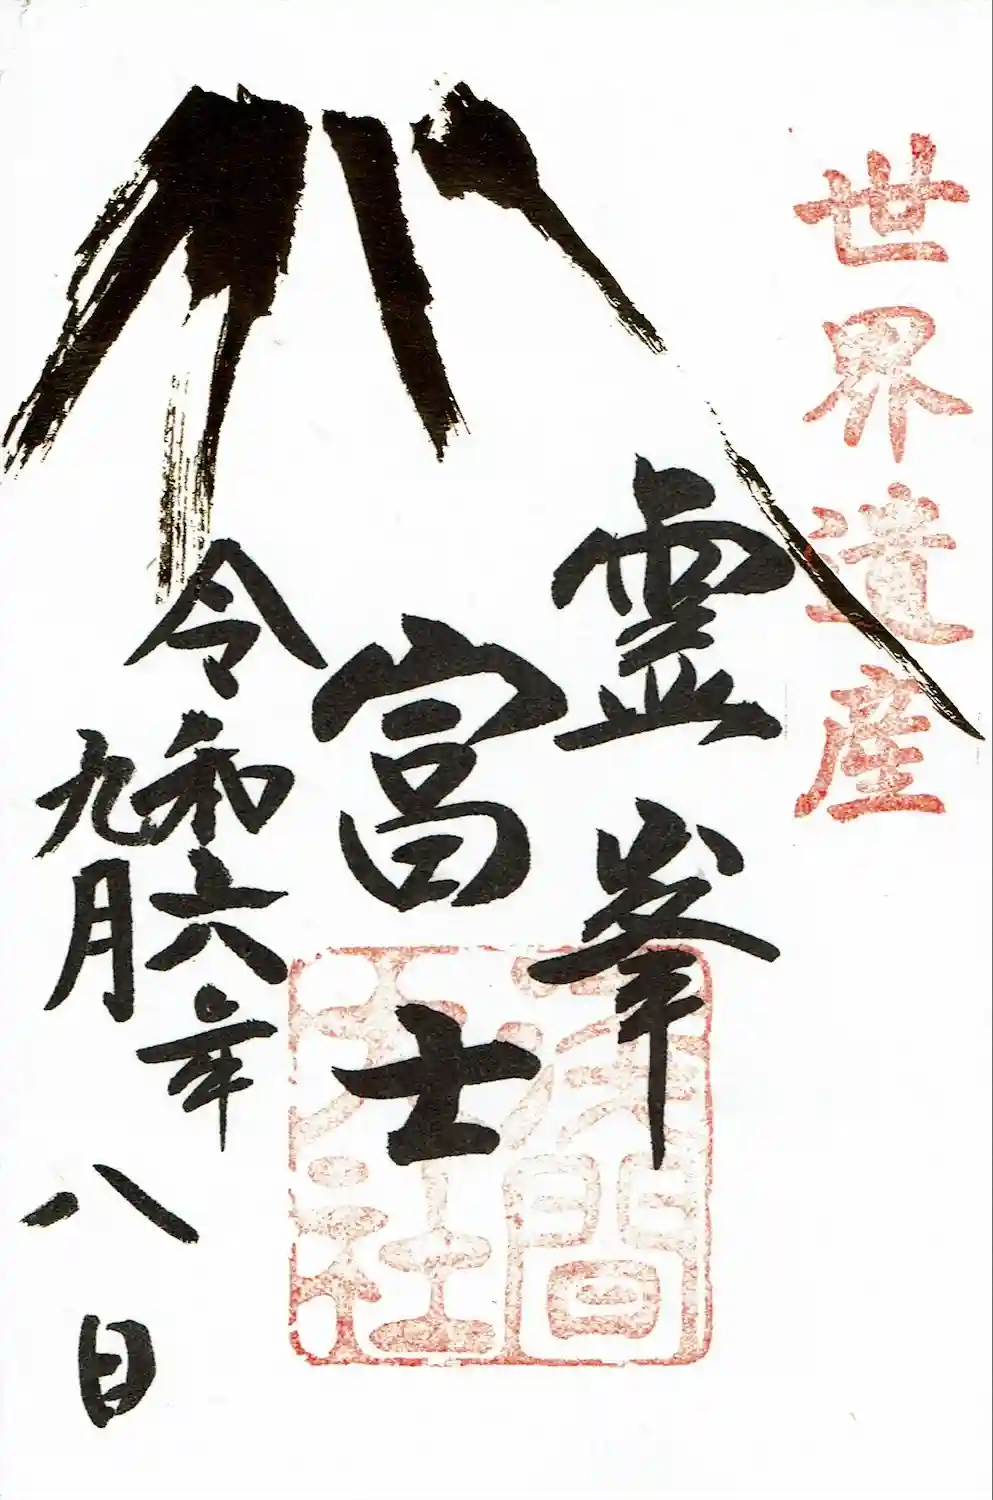 世界遺産
霊峯
富士
令和六年
九月八日
浅間
大社